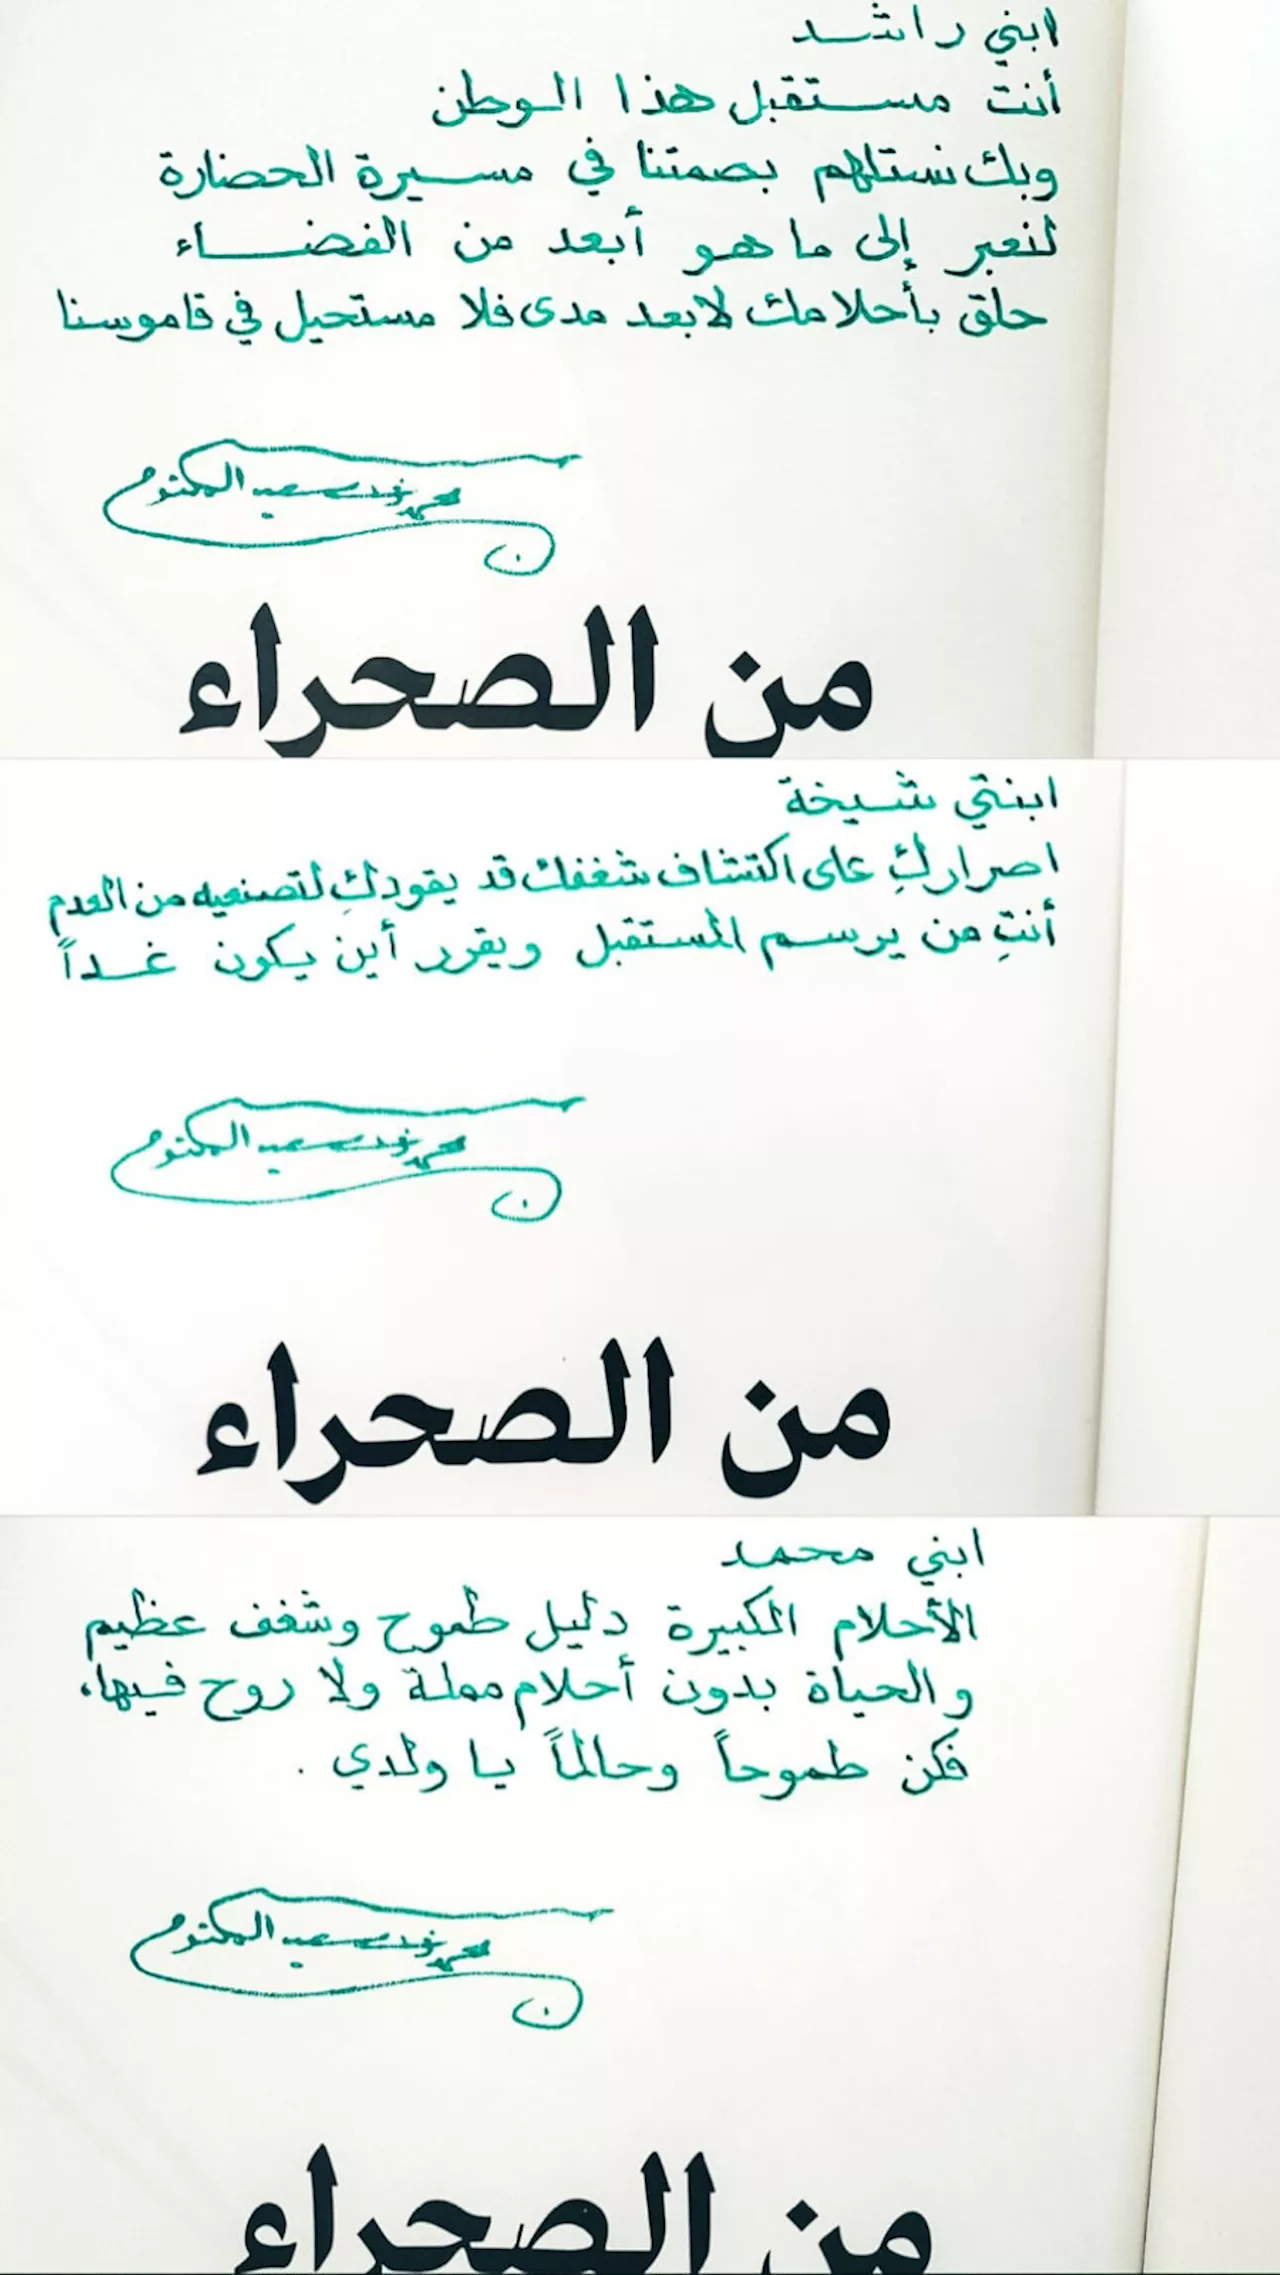 ابني راشد
أنت مستقبل هذا الوطن
وبك نستلهم بصمتنا في مسيرة الحضارة
لنعبر إلى ما هو أبعد من الفضاء
حلق بأحلامك لابعد مدى فلا مستحيل في قاموسنا
من الصحراء
ابنتي شيخة
اصراركِ على اكتشاف شغفك قد يقودكِ لتصنعيه من العدم
أنتِ من يرسم المستقبل ويقرر أين يكون غداً
من الصحراء
ابني محمد
الأحلام الكبيرة دليل طموح وشغف عظيم
والحياة بدون أحلام مملة ولا روح فيها،
فكن طموحاً وحالماً يا ولدي .
من الصحراء